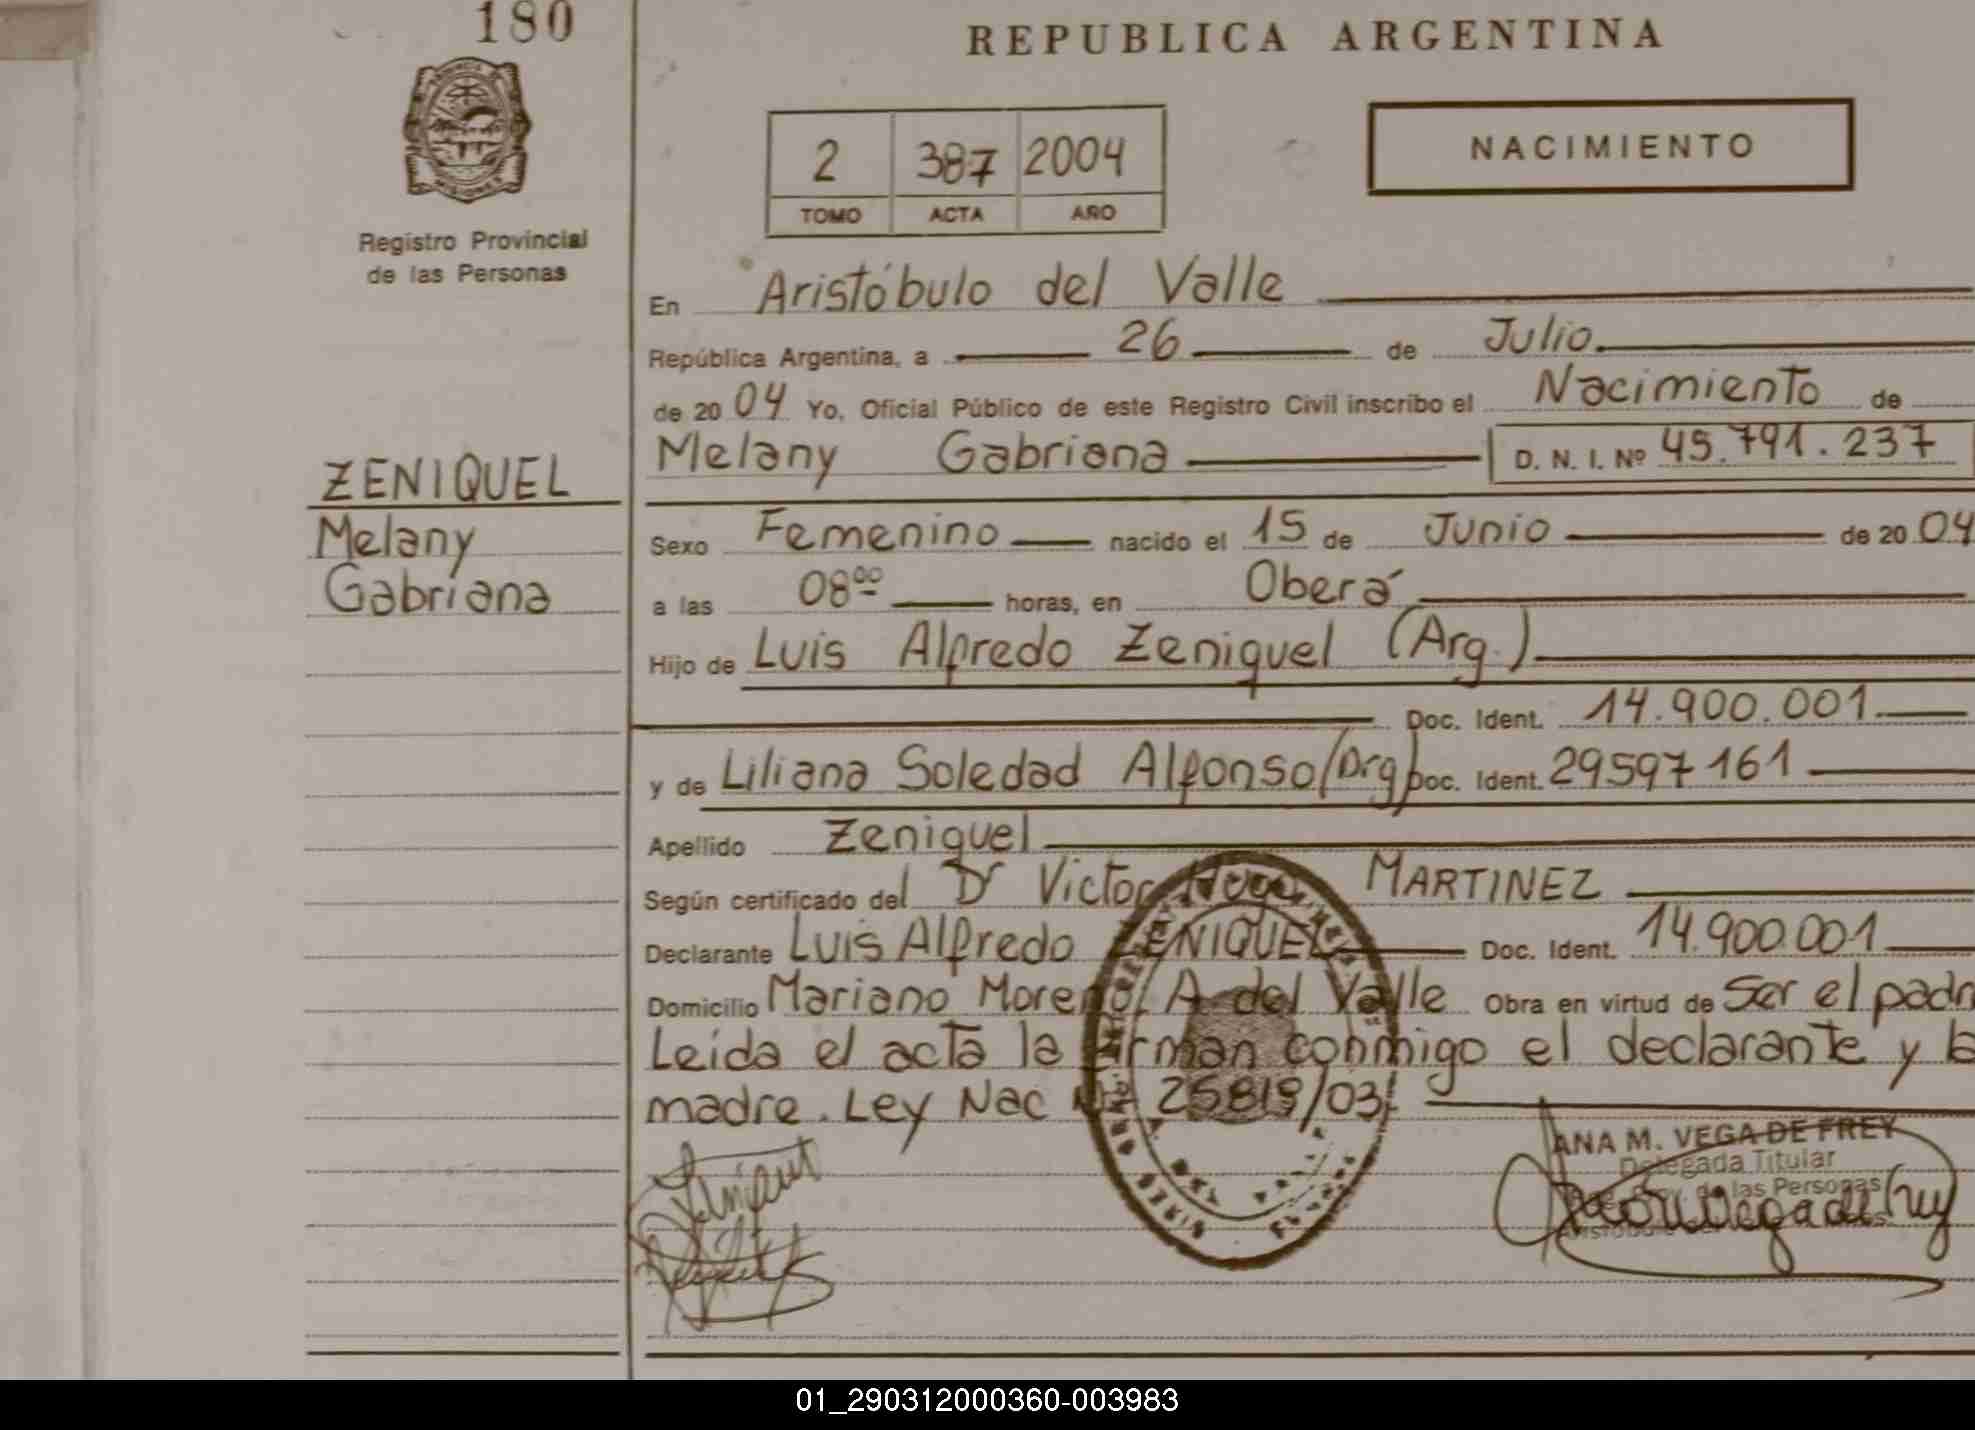 180
REPUBLICA ARGENTINA
NACIMIENTO
2 387 2004
TOMO ACTA AÑO
MISIONES
Registro Provincial
de las Personas
En Aristóbulo del Valle
República Argentina, a 26 de Julio
de 20 04 Yo, Oficial Público de este Registro Civil inscribo el Nacimiento de
ZENIQUEL
Melany
Gabriana
Melany Gabriana D. N. I. Nº 45.791.237
Sexo Femenino nacido el 15 de Junio de 20 04
a las 08⁰⁰ horas, en Oberá
Hijo de Luis Alfredo Zeniquel (Arg.)
Doc. Ident. 14.900.001
y de Liliana Soledad Alfonso (Arg) Doc. Ident. 29597161
Apellido Zeniquel
Según certificado del Dr Victor Hugo MARTINEZ
Declarante Luis Alfredo ZENIQUEL Doc. Ident. 14.900.001
Domicilio Mariano Moreno A. del Valle Obra en virtud de Ser el padr
Leída el acta la firman conmigo el declarante y la
madre. Ley Nac Nº 25819/03
ANA M. VEGA DE FREY
Delegada Titular
de las Personas
01_290312000360-003983